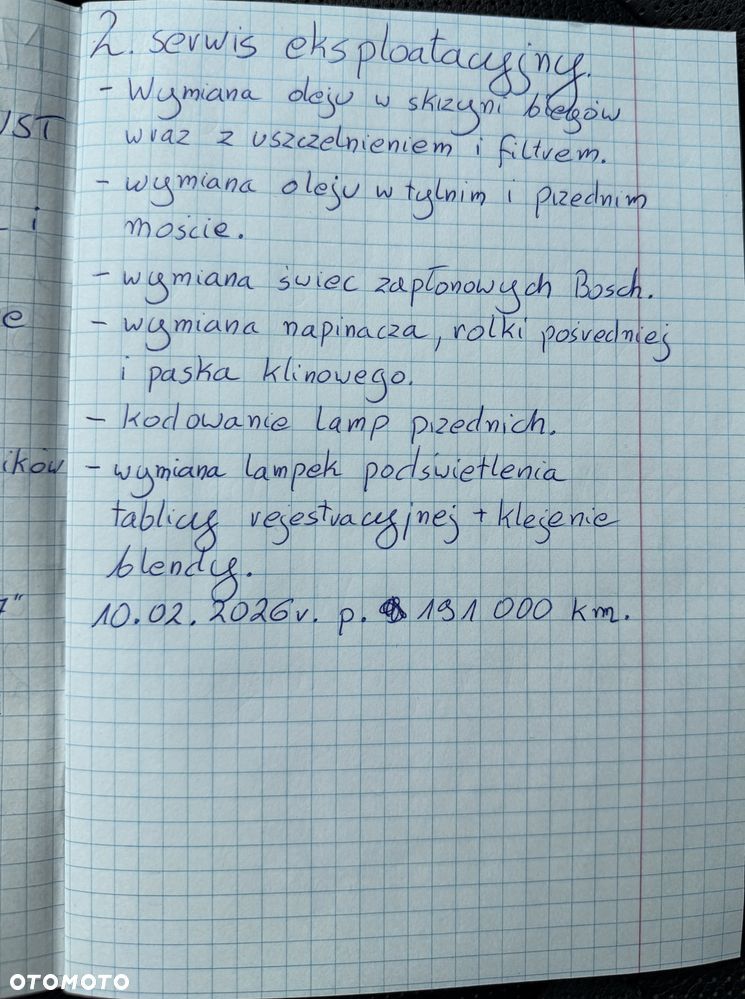 2. serwis eksploatacyjny.
- Wymiana oleju w skrzyni biegów
wraz z uszczelnieniem i filtrem.
- wymiana oleju w tylnim i przednim
moście.
- wymiana świec zapłonowych Bosch.
- wymiana napinacza, rolki pośredniej
i paska klinowego.
- kodowanie lamp przednich.
- wymiana lampek podświetlenia
tablicy rejestracyjnej + klejenie
blendy.
10.02.2026r. p. 191 000 km.
UST
i
e
ików
OTOMOTO